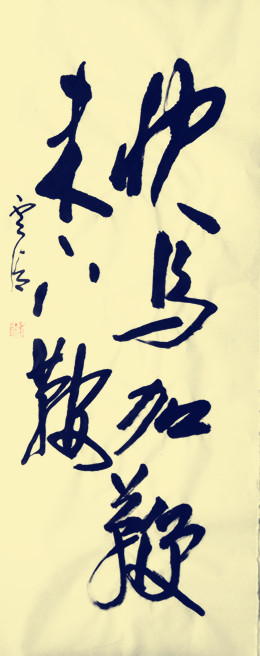 快马加鞭
未下鞍